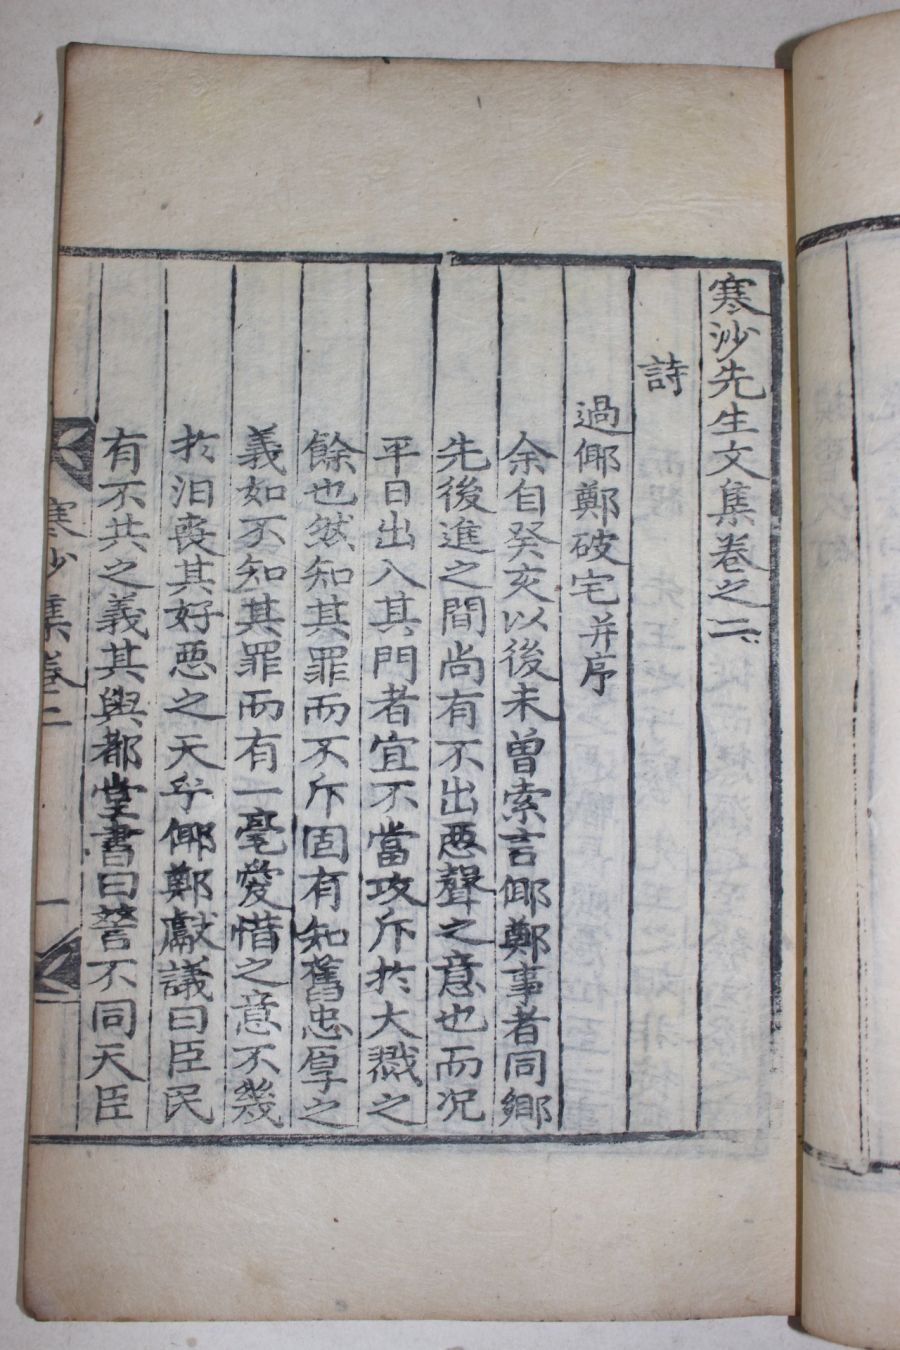 寒沙先生文集卷之二
詩
過鄊鄭破宅并序
余自癸亥以後未曾索言鄊鄭事者同鄉
先後進之間尚有不出惡聲之意也而况
平日出入其門者宜不當攻斥於大戮之
餘也然知其罪而不斥固有知舊忠厚之
義如不知其罪而有一毫愛惜之意不幾
於汨喪其好惡之天乎鄊鄭獻議曰臣民
有不共之義其與都堂書曰誓不同天臣
寒沙集卷二
一